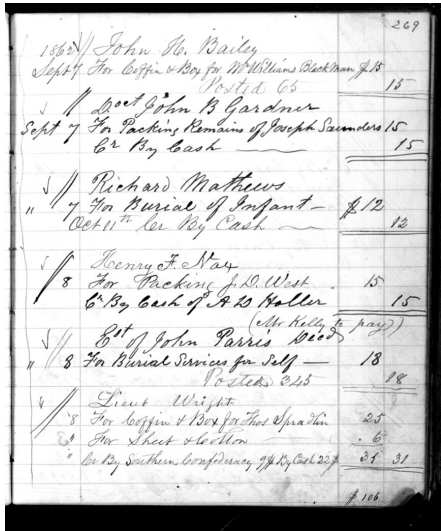 269
1862 // John H. Bailey
Sept 7 For Coffin & Box for Mr Williams Black Man $ 15
Posted 65 15
// Doct John B Gardner
Sept 7 For Packing Remains of Joseph Saunders 15
Cr By Cash 15
// Richard Mathews
" 7 For Burial of Infant $ 12
Oct 11th Cr By Cash 12
// Henry F.
8 For Packing J. D. West 15
Cr By Cash of A W Holler 15
(Mr Kelly to pay)
// Est of John Parris Decd
" 8 For Burial Services for Self 18
Posted 345 18
// Lieut Wright
" 8 For Coffin & Box for Thos Spradlin 25
" For Sheet & Cotton 6
" Cr By Southern Confederacy 9$ By Cash 22$ 31 31
$ 106